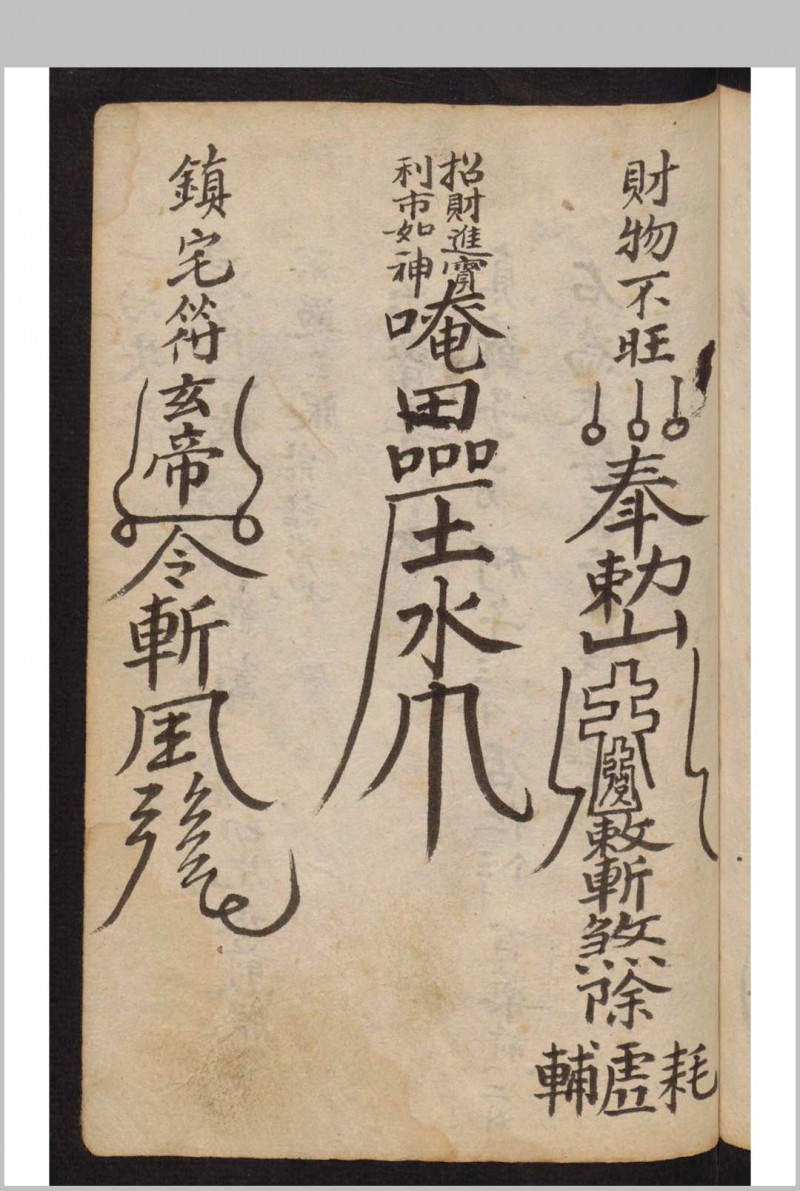 財物不旺
奉勅山
敕斬煞除
耗虛輔
招財進寶
利市如神
唵田品土水
鎮宅符
玄帝
令斬